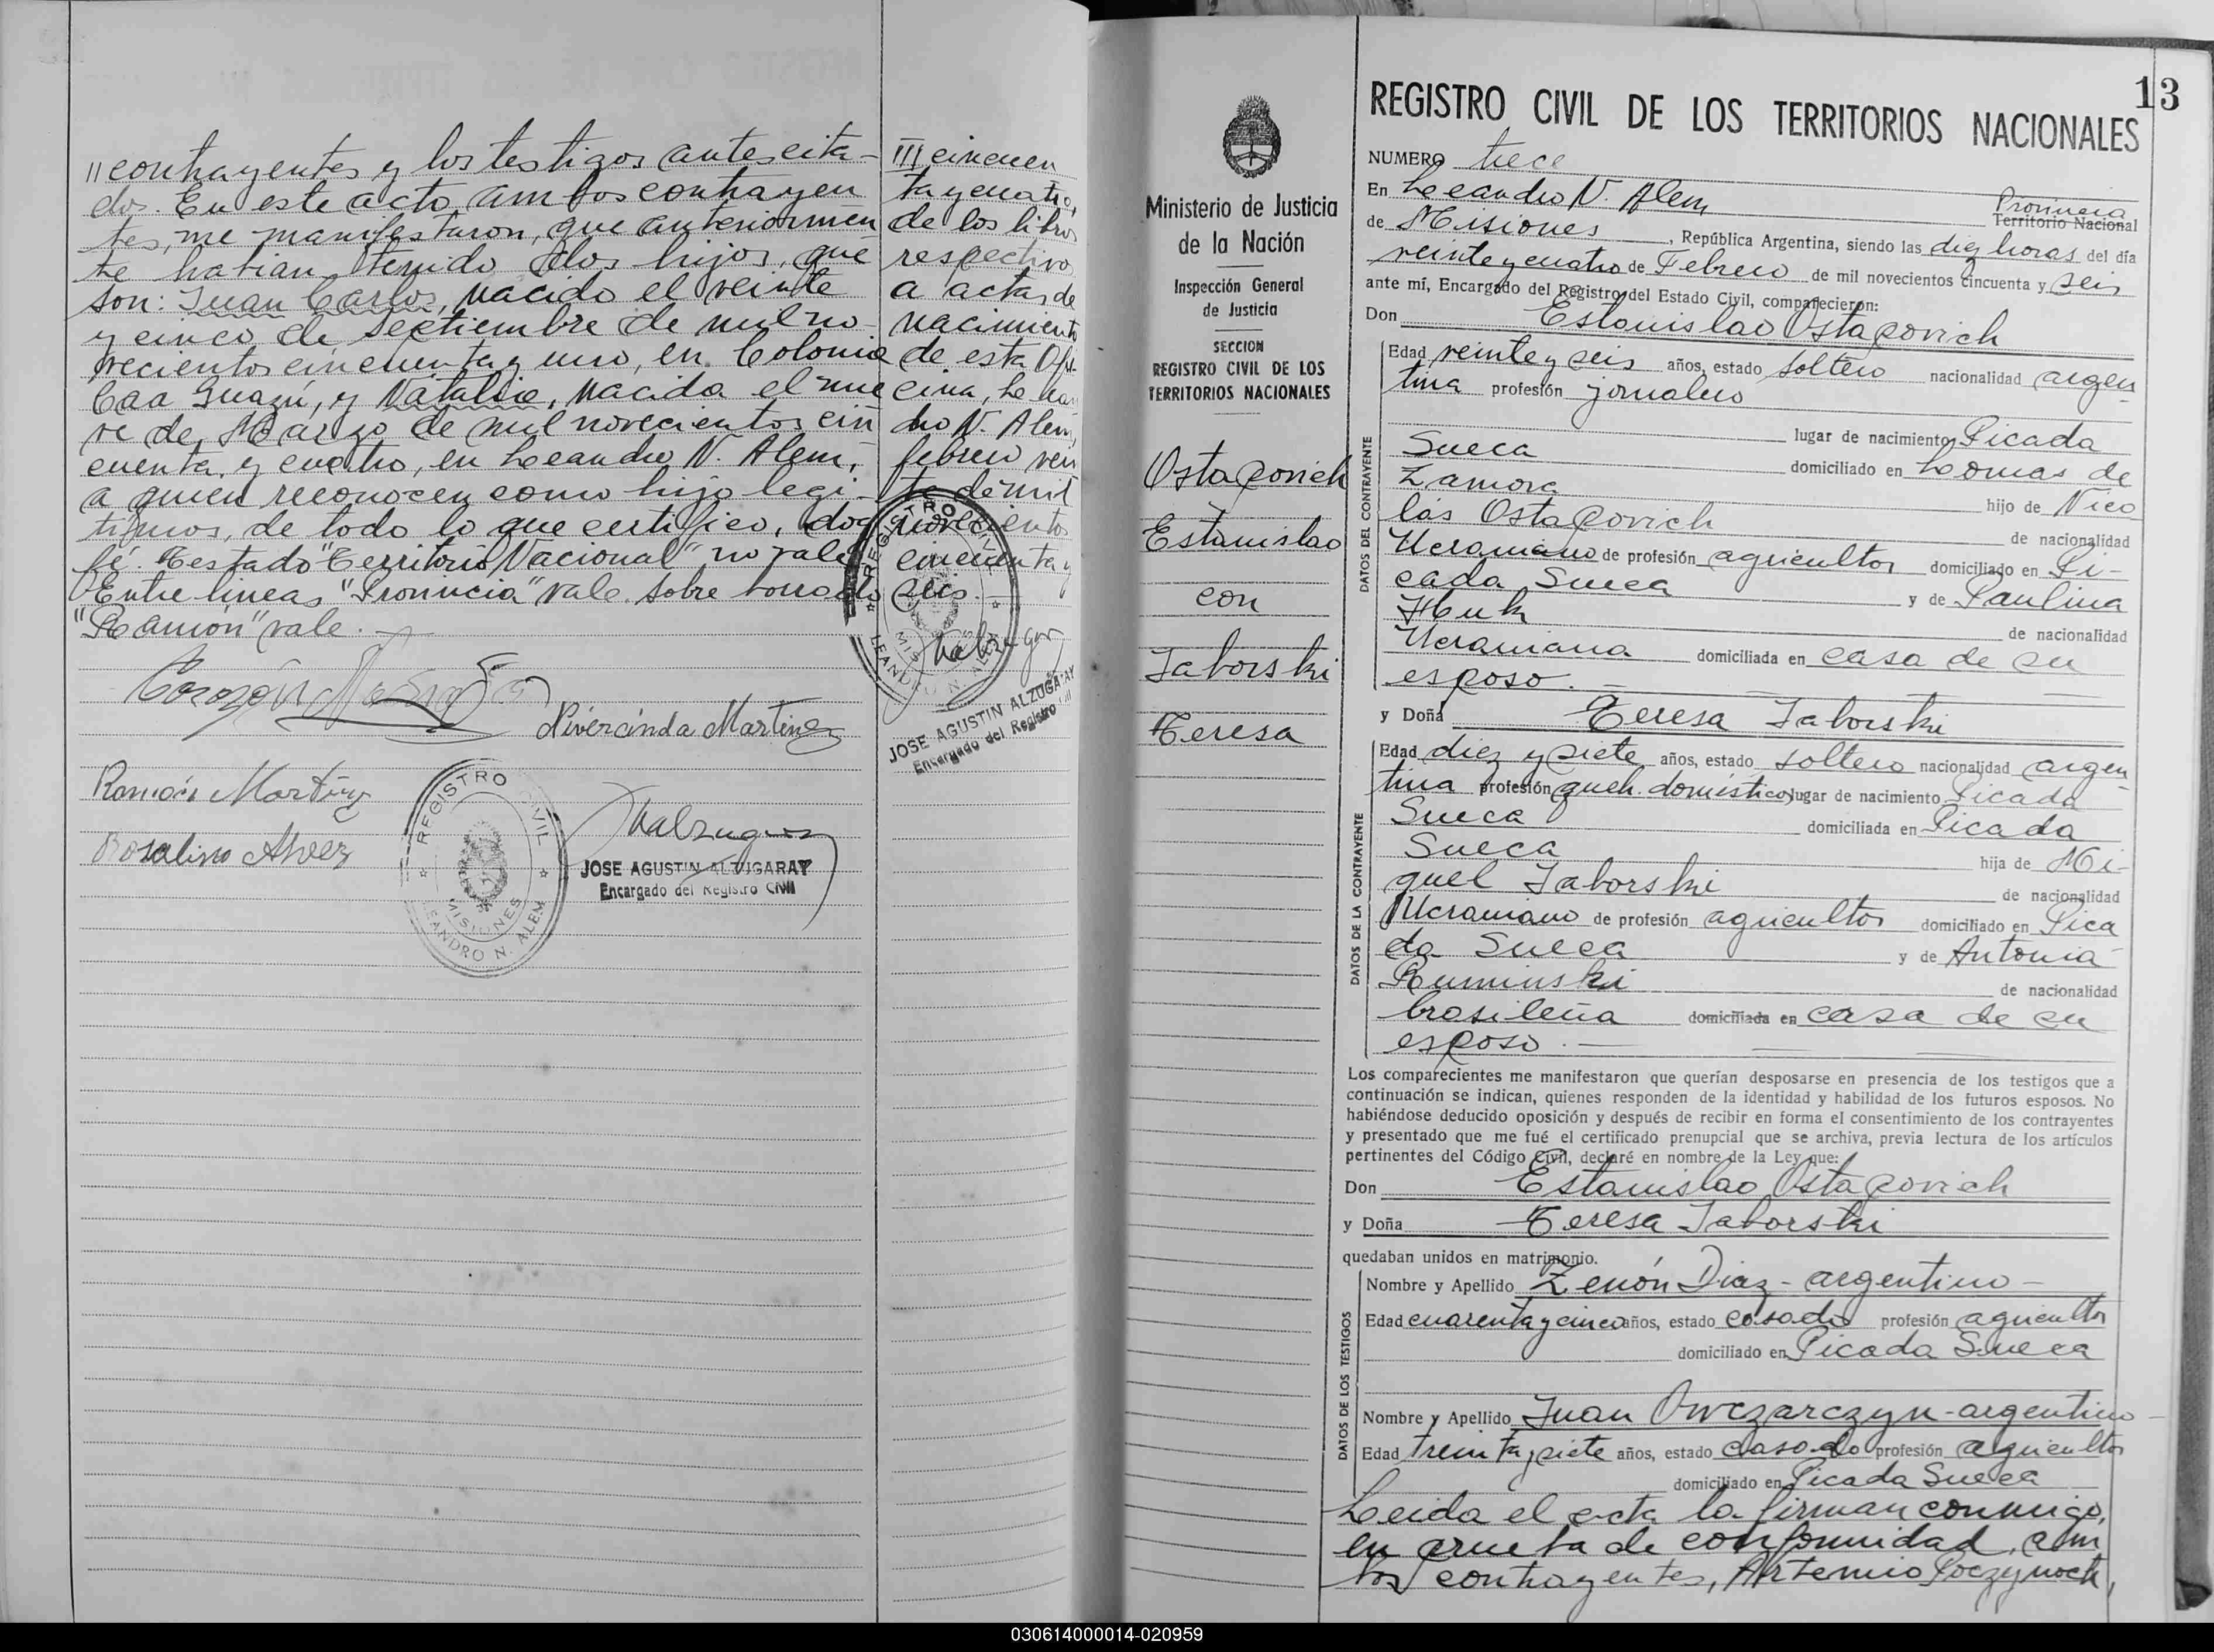 //contrayentes y los testigos antes cita-
dos. En este acto ambos contrayen
tes, me manifestaron, que anteriormen
te habian tenido dos hijos, que
son: Juan Carlos, nacido el veinte
y cinco de Septiembre de mil no-
vecientos cincuenta y uno, en Colonia
Caa Guazú, y Natalio, nacida el nue
ve de Marzo de mil novecientos cin
cuenta y cuatro, en Leandro N. Alem,
a quien reconocen como hijo legi-
timos, de todo lo que certifico, doy
fé. Testado "Territorio Nacional" no vale
Entre lineas "Provincia" vale. sobre borrado
"Ramón" vale.-
Niveranda Martinez
Ramón Martinez
Rosalino Alvez
REGISTRO CIVIL
MISIONES
LEANDRO N. ALEM
JOSE AGUSTIN ALZUGARAY
Encargado del Registro Civil
/// cincuen
ta y cuatro,
de los libros
respectivo
a actas de
nacimiento
de esta Ofi-
cina, Lean
dro N. Alem,
febrero vein
te de mil
novecientos
cincuenta y
seis.-
REGISTRO CIVIL
MISIONES
LEANDRO N. ALEM
JOSE AGUSTIN ALZUGARAY
Encargado del Registro Civil
Ministerio de Justicia
de la Nación
Inspección General
de Justicia
SECCION
REGISTRO CIVIL DE LOS
TERRITORIOS NACIONALES
Ostapovich
Estanislao
con
Jaborski
Teresa
13
REGISTRO CIVIL DE LOS TERRITORIOS NACIONALES
NUMERO trece
En Leandro N. Alem Provincia Territorio Nacional
de Misiones, República Argentina, siendo las diez horas del día
veinte y cuatro de Febrero de mil novecientos cincuenta y seis
ante mí, Encargado del Registro del Estado Civil, comparecieron:
Don Estanislao Ostapovich
DATOS DEL CONTRAYENTE
Edad veinte y seis años, estado soltero nacionalidad argen
tina profesión jornalero
lugar de nacimiento Picada
Sueca domiciliado en Lomas de
Zamora hijo de Nico
lás Ostapovich de nacionalidad
Ucraniano de profesión agricultor domiciliado en Pi-
cada Sueca y de Paulina
Huk de nacionalidad
Ucraniana domiciliada en casa de su
esposo.-
y Doña Teresa Jaborski
DATOS DE LA CONTRAYENTE
Edad diez y siete años, estado soltero nacionalidad argen
tina profesión queh. doméstico lugar de nacimiento Picada
Sueca domiciliada en Picada
Sueca hija de Mi-
guel Jaborski de nacionalidad
Ucraniano de profesión agricultor domiciliado en Pica
da Sueca y de Antonia
Ruminski de nacionalidad
brasileña domiciliada en casa de su
esposo.-
Los comparecientes me manifestaron que querían desposarse en presencia de los testigos que a
continuación se indican, quienes responden de la identidad y habilidad de los futuros esposos. No
habiéndose deducido oposición y después de recibir en forma el consentimiento de los contrayentes
y presentado que me fué el certificado prenupcial que se archiva, previa lectura de los artículos
pertinentes del Código Civil, declaré en nombre de la Ley que:
Don Estanislao Ostapovich
y Doña Teresa Jaborski
quedaban unidos en matrimonio.
DATOS DE LOS TESTIGOS
Nombre y Apellido Zenón Diaz - argentino -
Edad cuarenta y cinco años, estado casado profesión agricultor
domiciliado en Picada Sueca
Nombre y Apellido Juan Owczarczyn - argentino -
Edad treinta y siete años, estado casado profesión agricultor
domiciliado en Picada Sueca
Leida el acta la firman conmigo,
en prueba de conformidad, am
bos contrayentes, Artemio Poczynock,
030614000014-020959